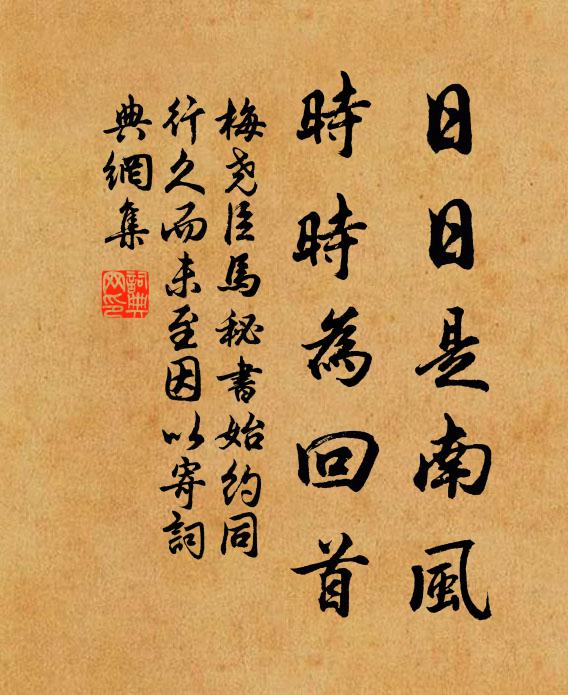 日日是南風
時時為回首
梅堯臣馬秘書始約同
行久而未至因以寄詞
典網集
詞典
网印